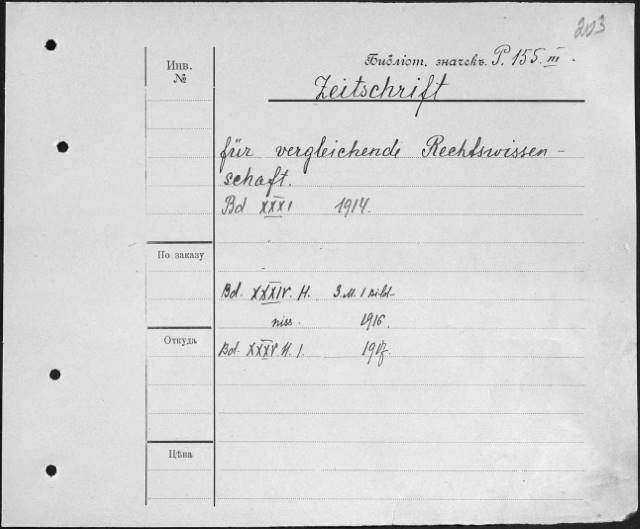 203
Библіот. значекъ P. 155 III.
Инв.
№
Zeitschrift
für vergleichende Rechtswissen-
schaft.
Bd XXXI 1914.
По заказу
Bd. XXXIV. H. 3
niss. 1916.
Откуда
Bd. XXXV. H. 1. 1917.
Цѣна